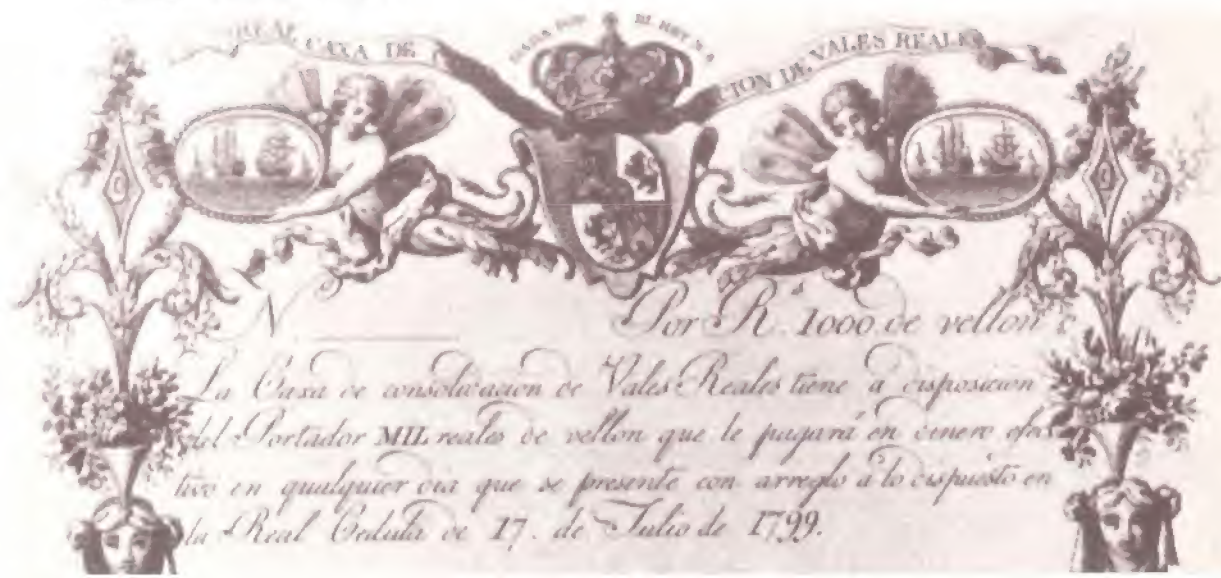 REAL CAXA DE
CION DE VALES REALES
N
Por R.s 1000 de vellon
La Caxa de consolidacion de Vales Reales tiene á disposicion
del Portador MIL reales de vellon que le pagará en dinero efec
tivo en qualquier dia que se presente con arreglo á lo dispuesto en
la Real Cedula de 17. de Julio de 1799.